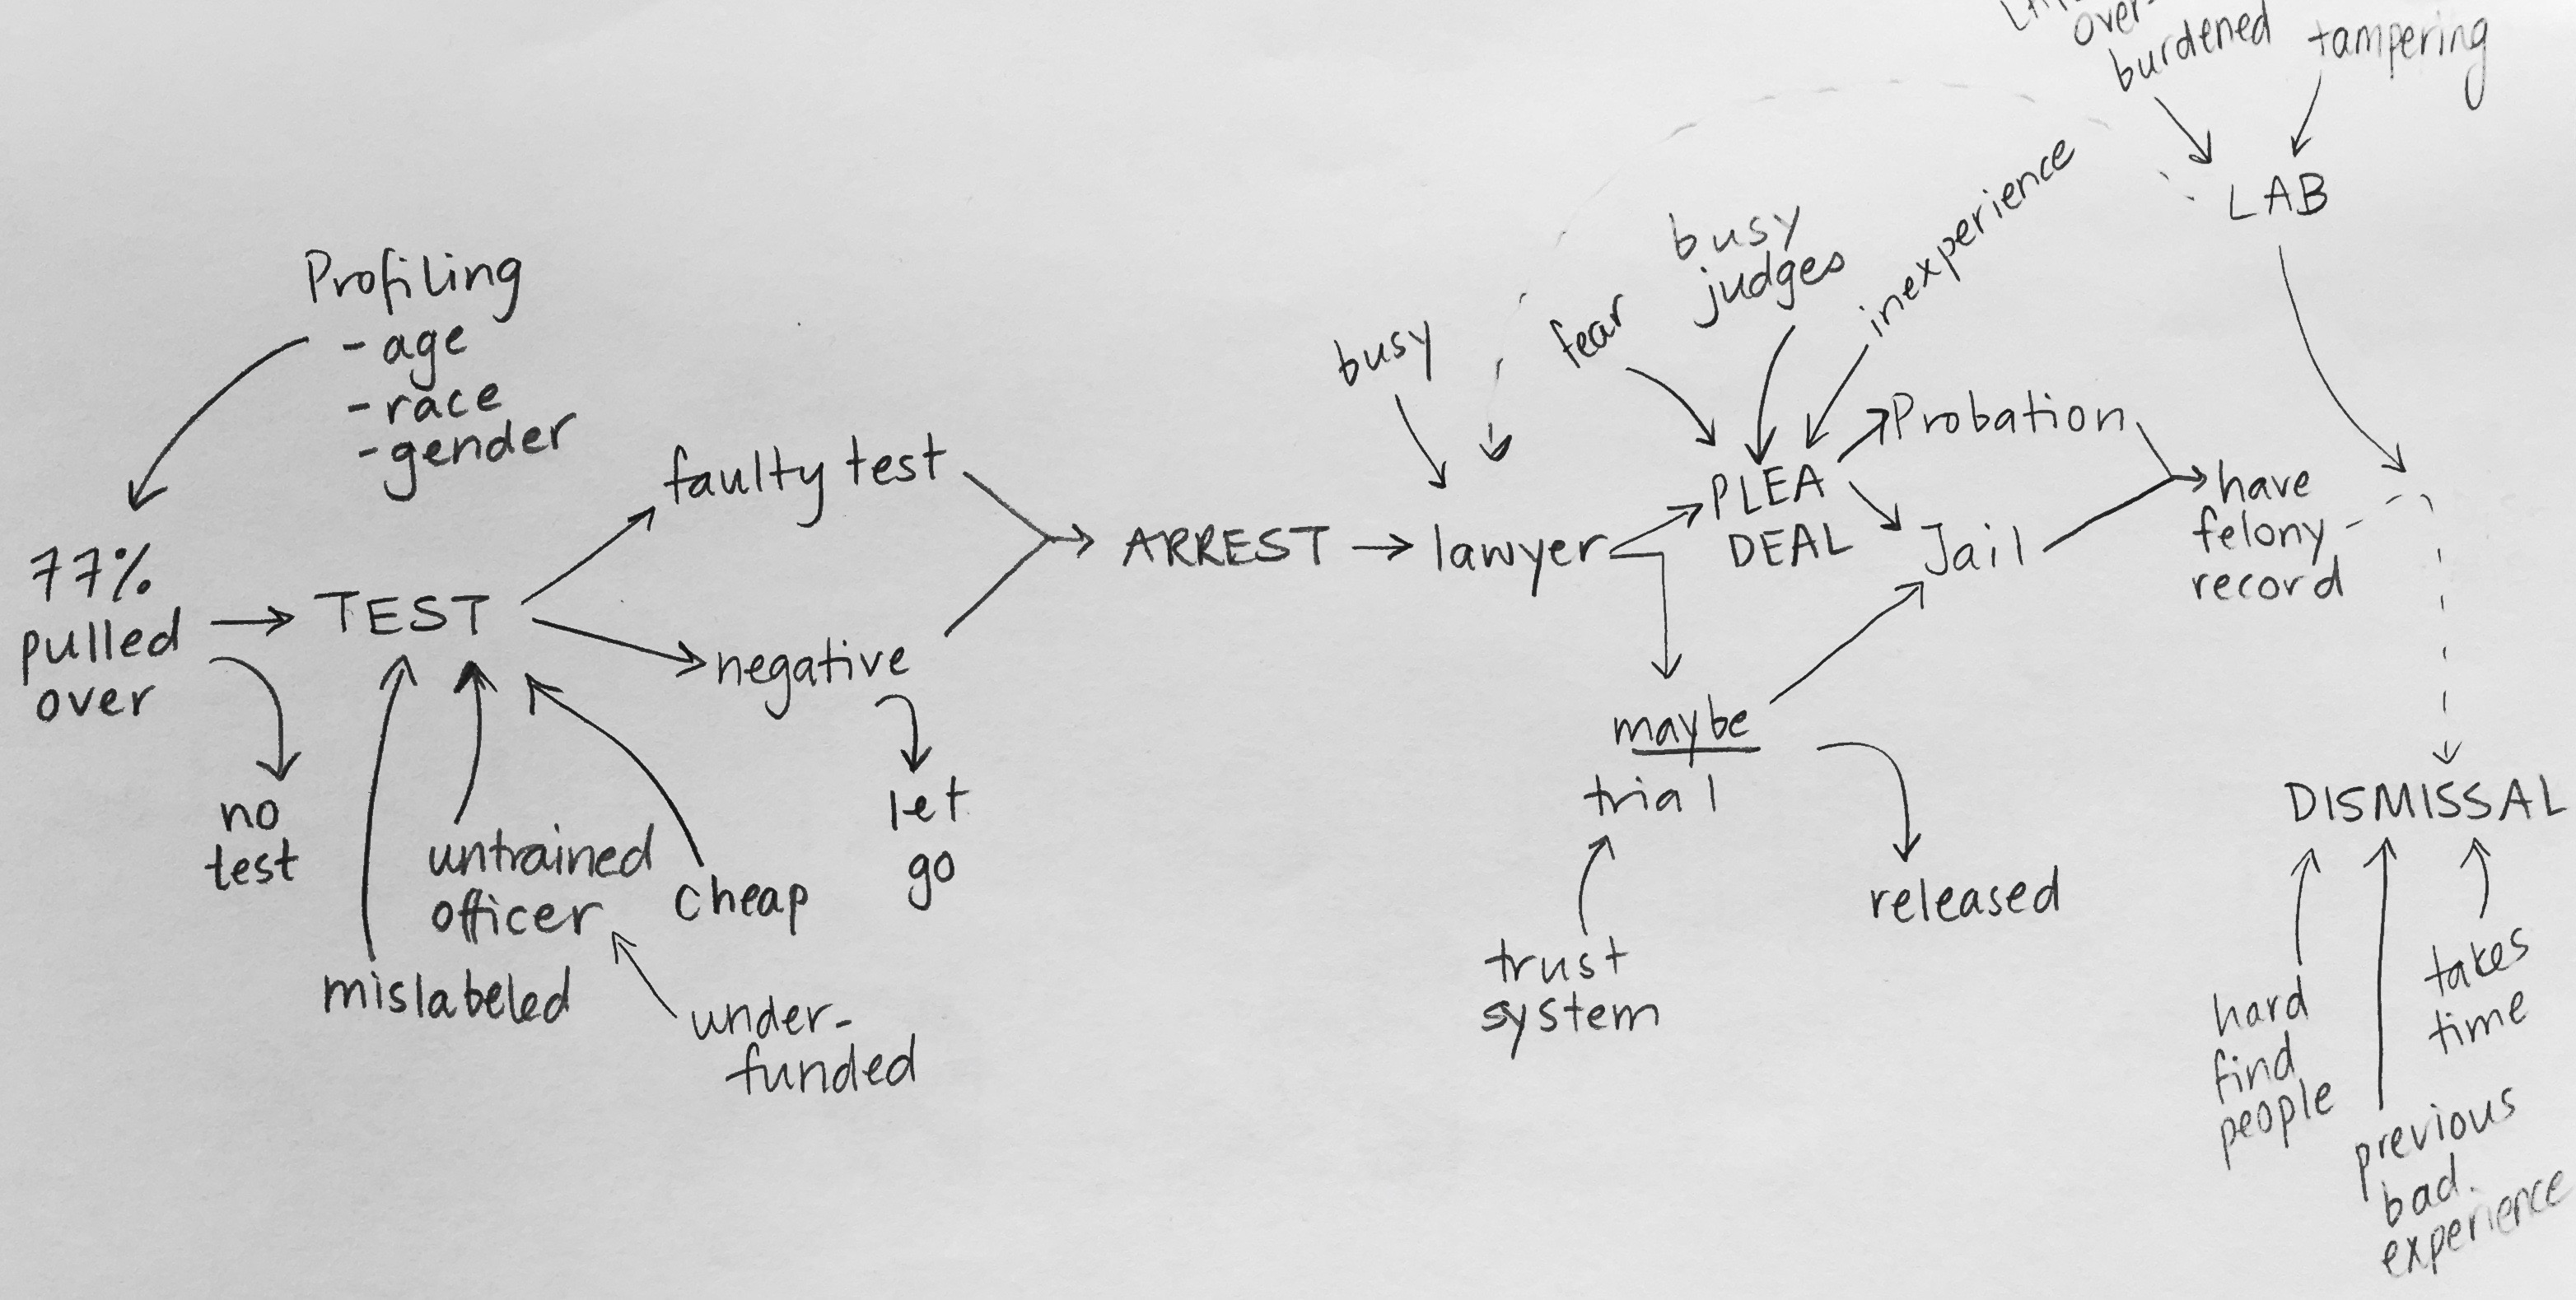 over-
burdened
tampering
LAB
Profiling
- age
- race
- gender
77%
pulled
over
TEST
no
test
mislabeled
untrained
officer
cheap
under-
funded
faulty test
negative
let
go
ARREST
busy
lawyer
fear
busy
judges
inexperience
PLEA
DEAL
Probation
Jail
have
felony
record
maybe
trial
trust
system
released
DISMISSAL
hard
find
people
previous
bad
experience
takes
time